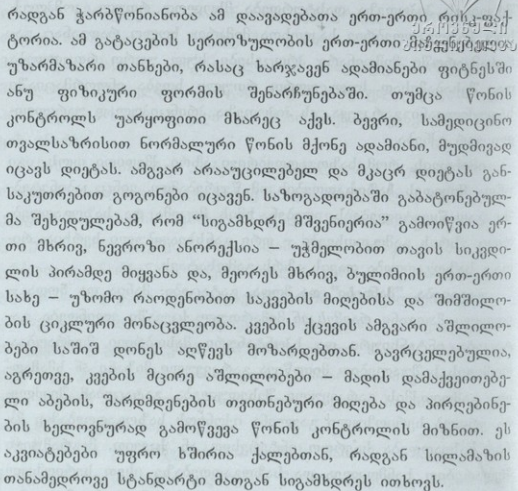 რადგან ჭარბწონიანობა ამ დაავადებათა ერთ-ერთი რისკ-ფაქ-
ტორია. ამ გატაცების სერიოზულობის ერთ-ერთი მაჩვენებელია
უზარმაზარი თანხები, რასაც ხარჯავენ ადამიანები ფიტნესში
ანუ ფიზიკური ფორმის შენარჩუნებაში. თუმცა წონის
კონტროლს უარყოფითი მხარეც აქვს. ბევრი, სამედიცინო
თვალსაზრისით ნორმალური წონის მქონე ადამიანი, მუდმივად
იცავს დიეტას. ამგვარ არააუცილებელ და მკაცრ დიეტას გან-
საკუთრებით გოგონები იცავენ. საზოგადოებაში გაბატონებულ-
მა შეხედულებამ, რომ “სიგამხდრე მშვენიერია” გამოიწვია ერ-
თი მხრივ, ნევროზი ანორექსია – უჭმელობით თავის სიკვდი-
ლის პირამდე მიყვანა და, მეორეს მხრივ, ბულიმიის ერთ-ერთი
სახე – უზომო რაოდენობით საკვების მიღებისა და შიმშილო-
ბის ციკლური მონაცვლეობა. კვების ქცევის ამგვარი აშლილო-
ბები საშიშ დონეს აღწევს მოზარდებთან. გავრცელებულია,
აგრეთვე, კვების მცირე აშლილობები – მადის დამაქვეითებე-
ლი აბების, შარდმდენების თვითნებური მიღება და პირღებინე-
ბის ხელოვნურად გამოწვევა წონის კონტროლის მიზნით. ეს
აკვიატებები უფრო ხშირია ქალებთან, რადგან სილამაზის
თანამედროვე სტანდარტი მათგან სიგამხდრეს ითხოვს.